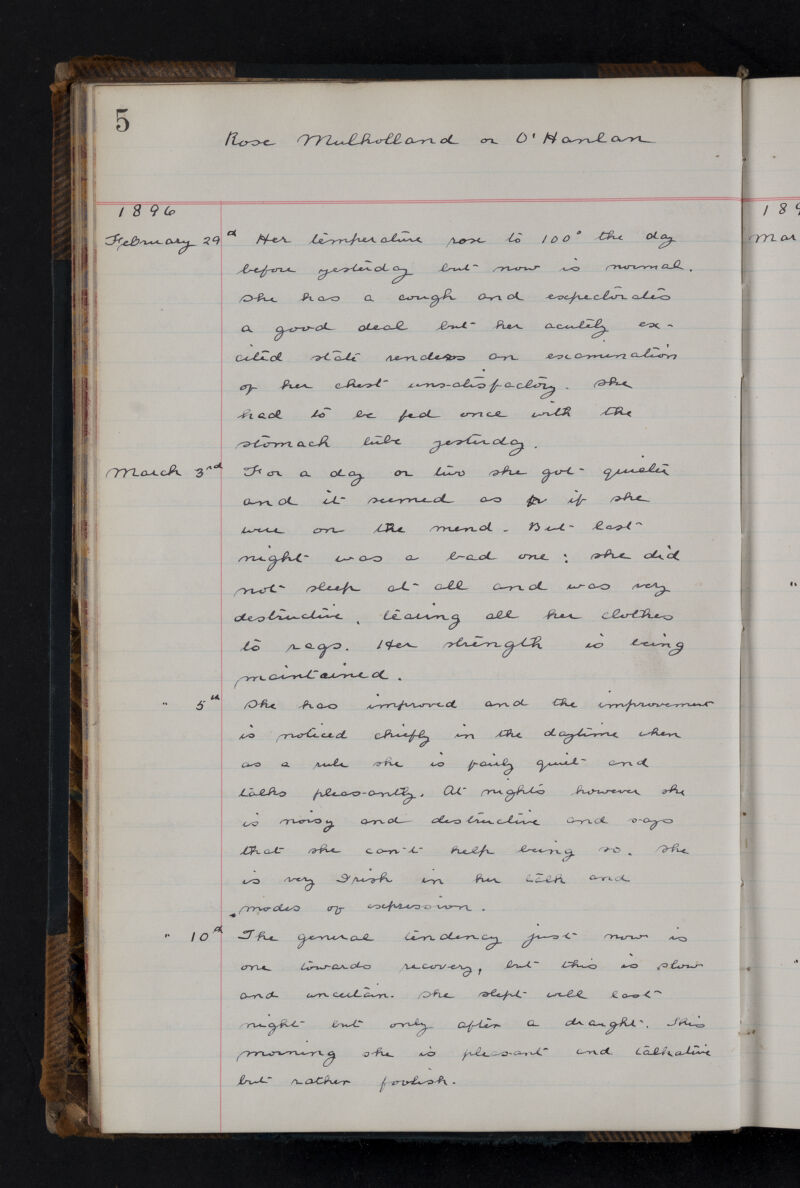 5
Rose Mulholland or O'Hanlan
1896
February 29th Her temperature rose to 100° the day
before yesterday but now is normal.
She has a cough and expectorates
a good deal but her acutely ex-
cited state renders an examination
of her chest unsatisfactory. She
had to be fed once with the
stomach tube yesterday.
March 3rd For a day or two she got quieter
and it seemed as if she
were on the mend. But last
night was a bad one: she did
not sleep at all and was very
destructive, tearing all her clothes
to rags. Her strength is being
maintained.
" 5th She has improved and the improvement
is noticed chiefly in the daytime when
as a rule she is fairly quiet and
talks pleasantly. At nights however she
is noisy and destructive and says
that she can't help being so. She
is very Irish in her talk and
modes of expression.
" 10th The general tendency just now is
one towards recovery, but this is slow
and uncertain. She slept well last
night but only after a draught. This
morning she is pleasant and talkative
but rather foolish.
189
Mar
"
"